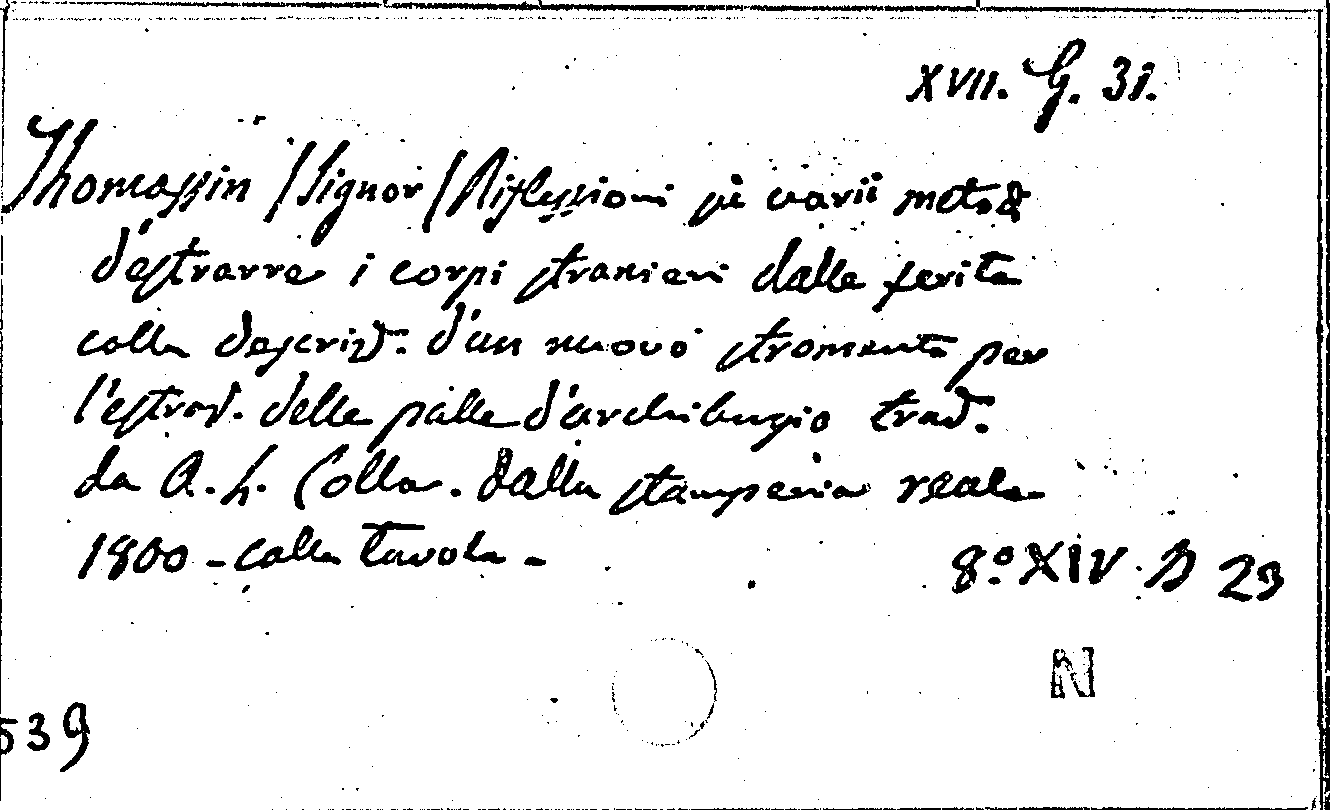 XVII. G. 31.
Thomassin /Signor/ Riflessioni su varii metodi
d'estrarre i corpi stranieri dalle ferite
colla descriz. d'un nuovo stromento per
l'estraz. delle palle d'archibugio trad.
da A. L. Colla. Dalla stamperia reale
1800 - colla tavola -
8.º XIV. D 23
N
539